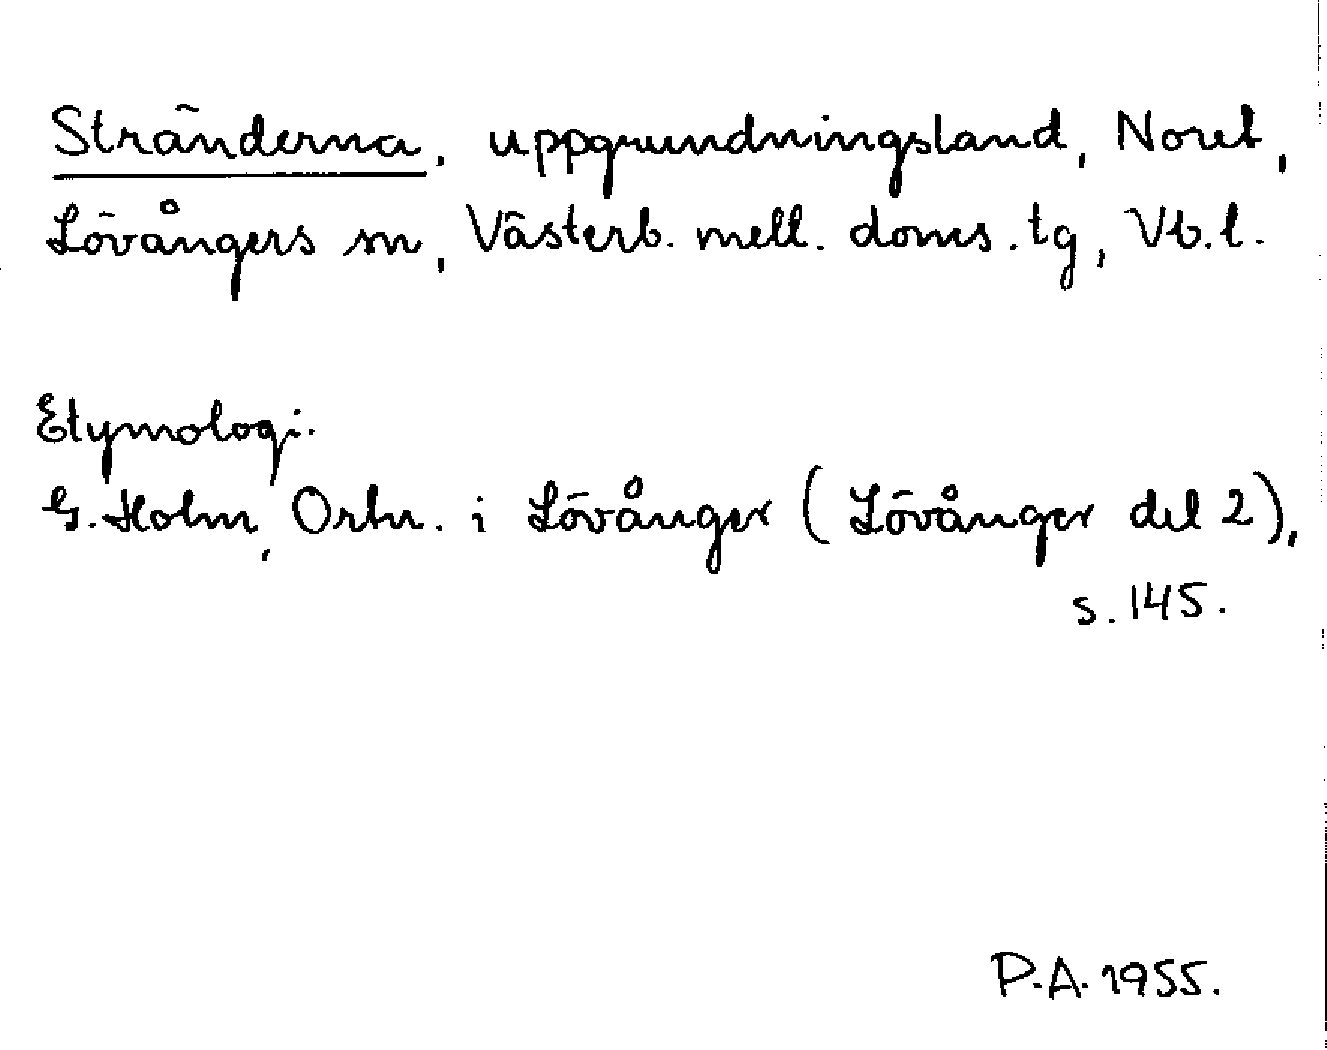 Stränderna, uppgrundningsland, Noret,
Lövångers sn, Västerb. mell. doms. tg, Vb. l.
Etymologi.
G. Holm, Ortn. i Lövånger (Lövånger del 2),
s. 145.
P.A. 1955.